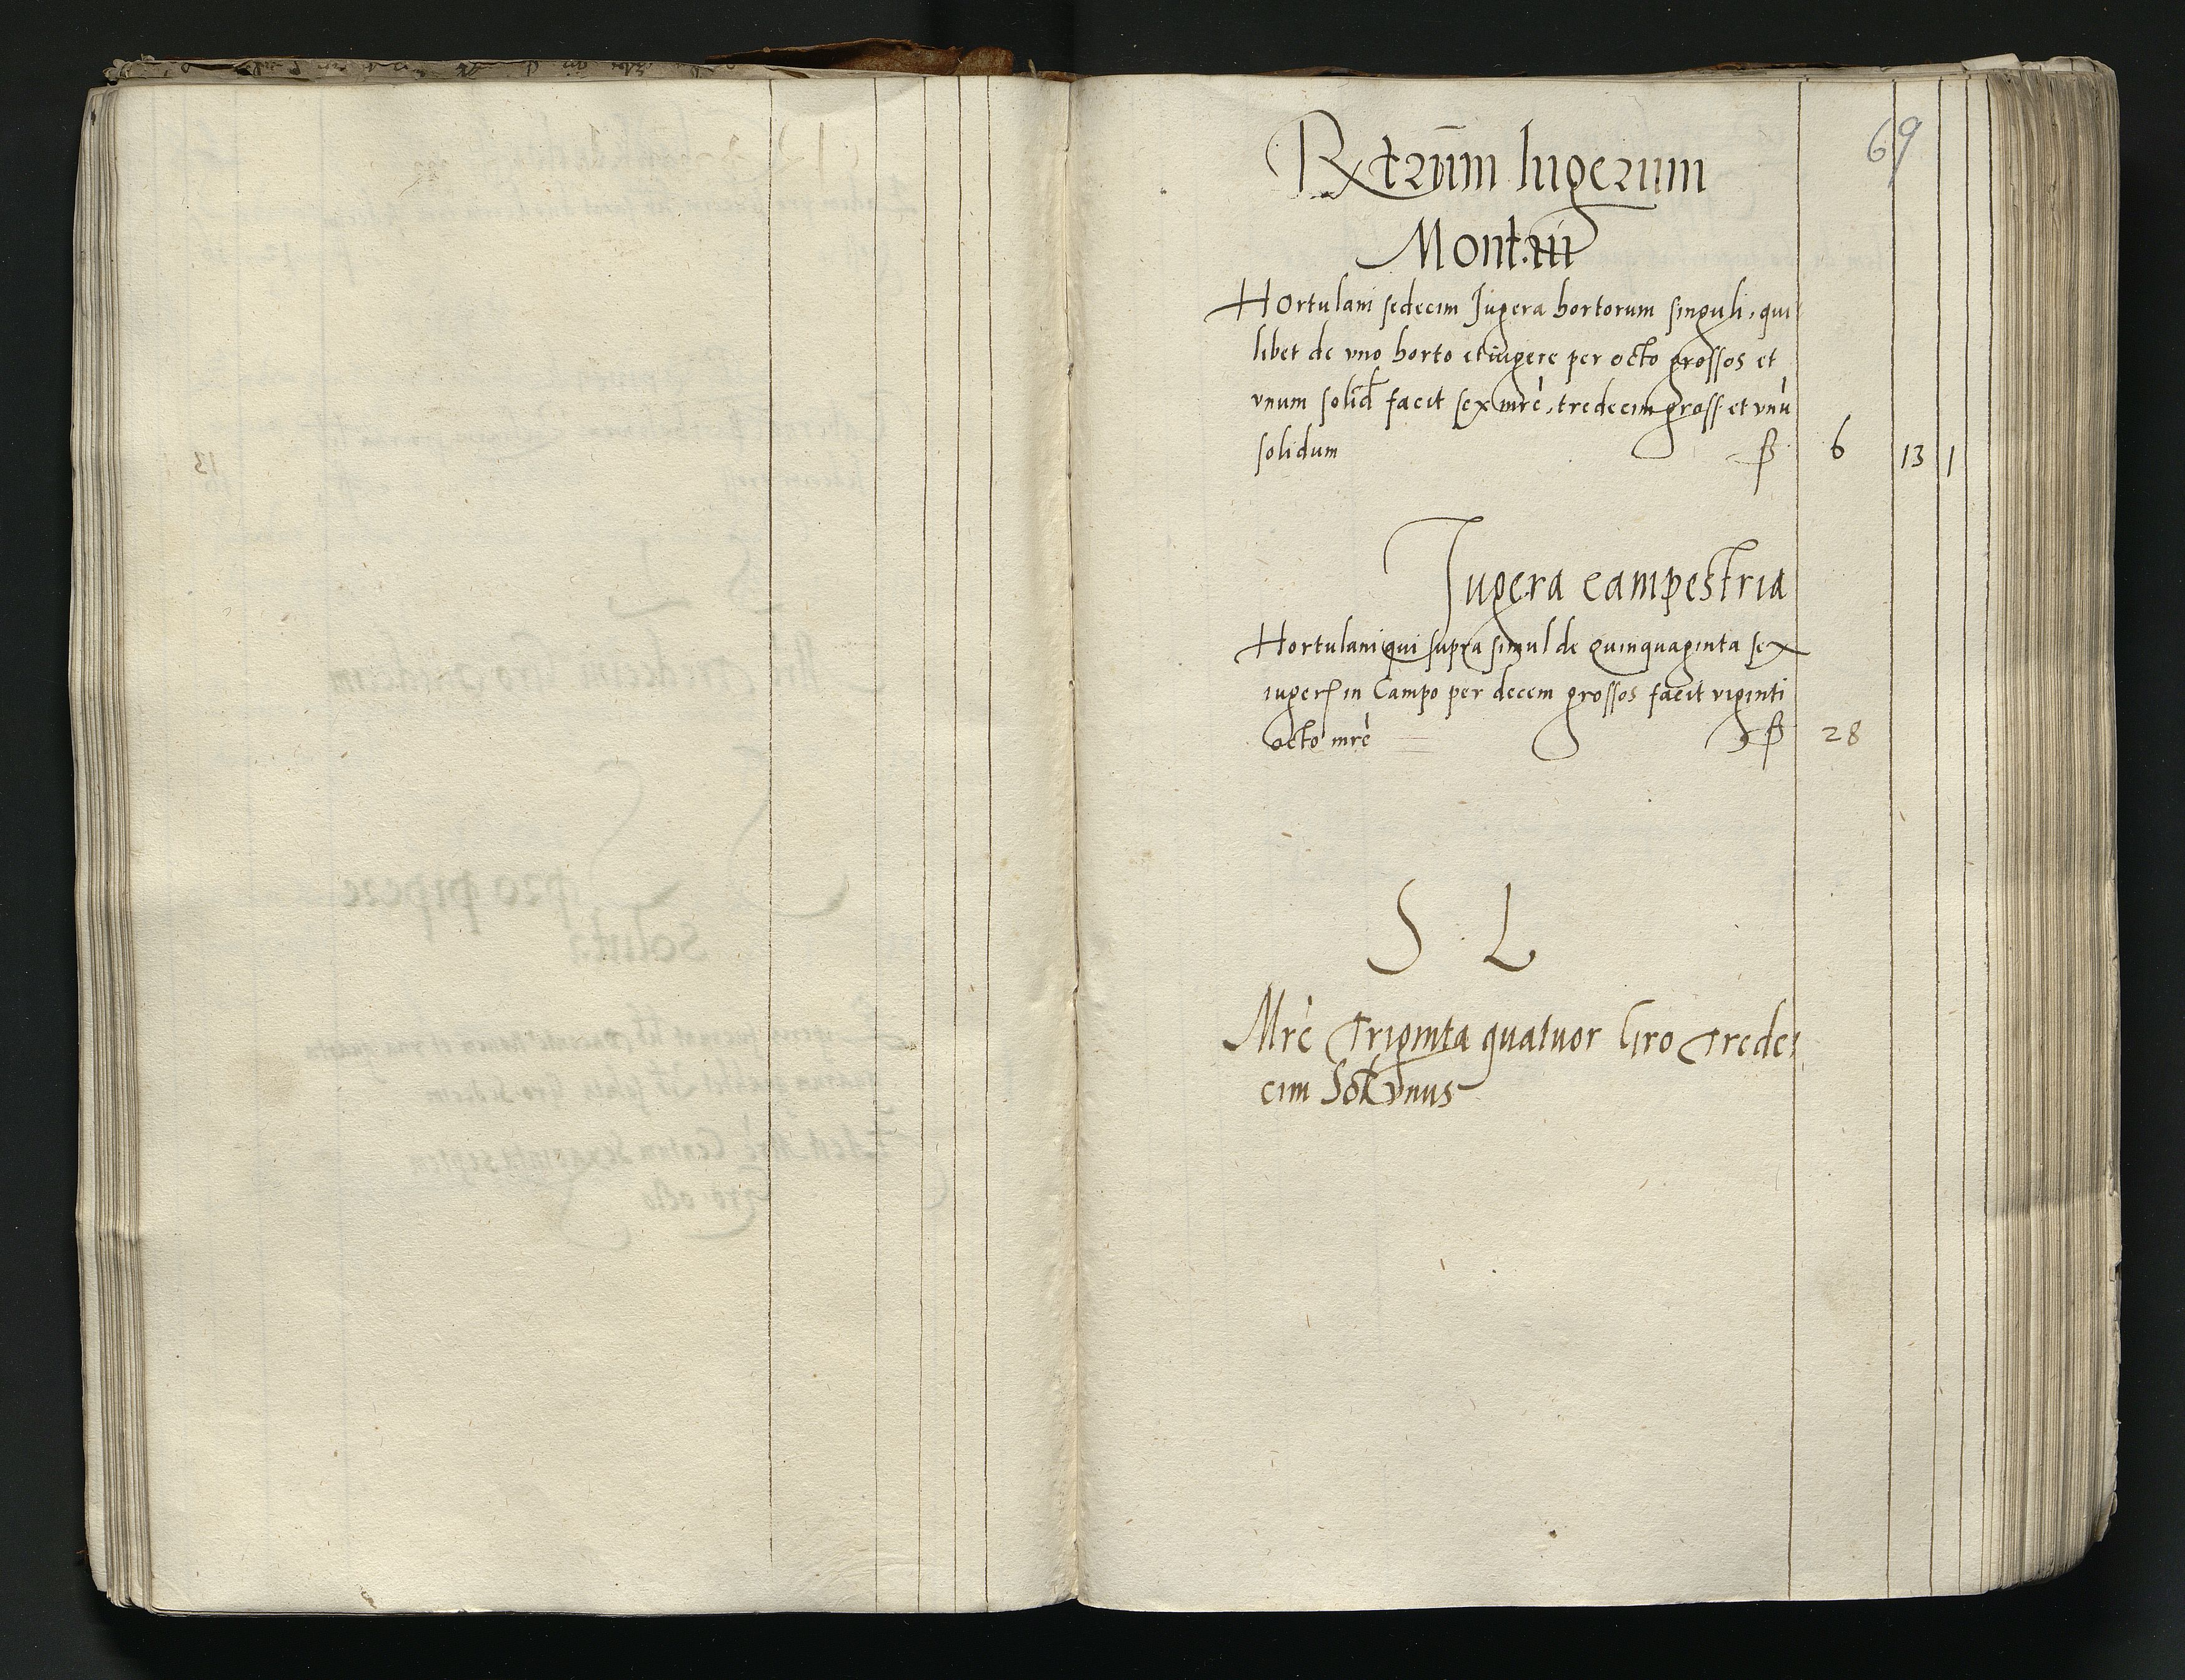 69
Iugerum
Hortulani sedecim Jugera hortorum singuli, qui
libet de vno horto et iugere per octo grossos et
vnum solid facit sex mrc, tredecim gross et vnu
solidum ß 6 13 1
Jugera campestria
Hortulani qui supra simul de quinquaginta sex
iuger in Campo per decem grossos facit viginti
octo mrc ß 28
S L
Mrc Triginta quatuor Gro Trede,
cim Sol vnus